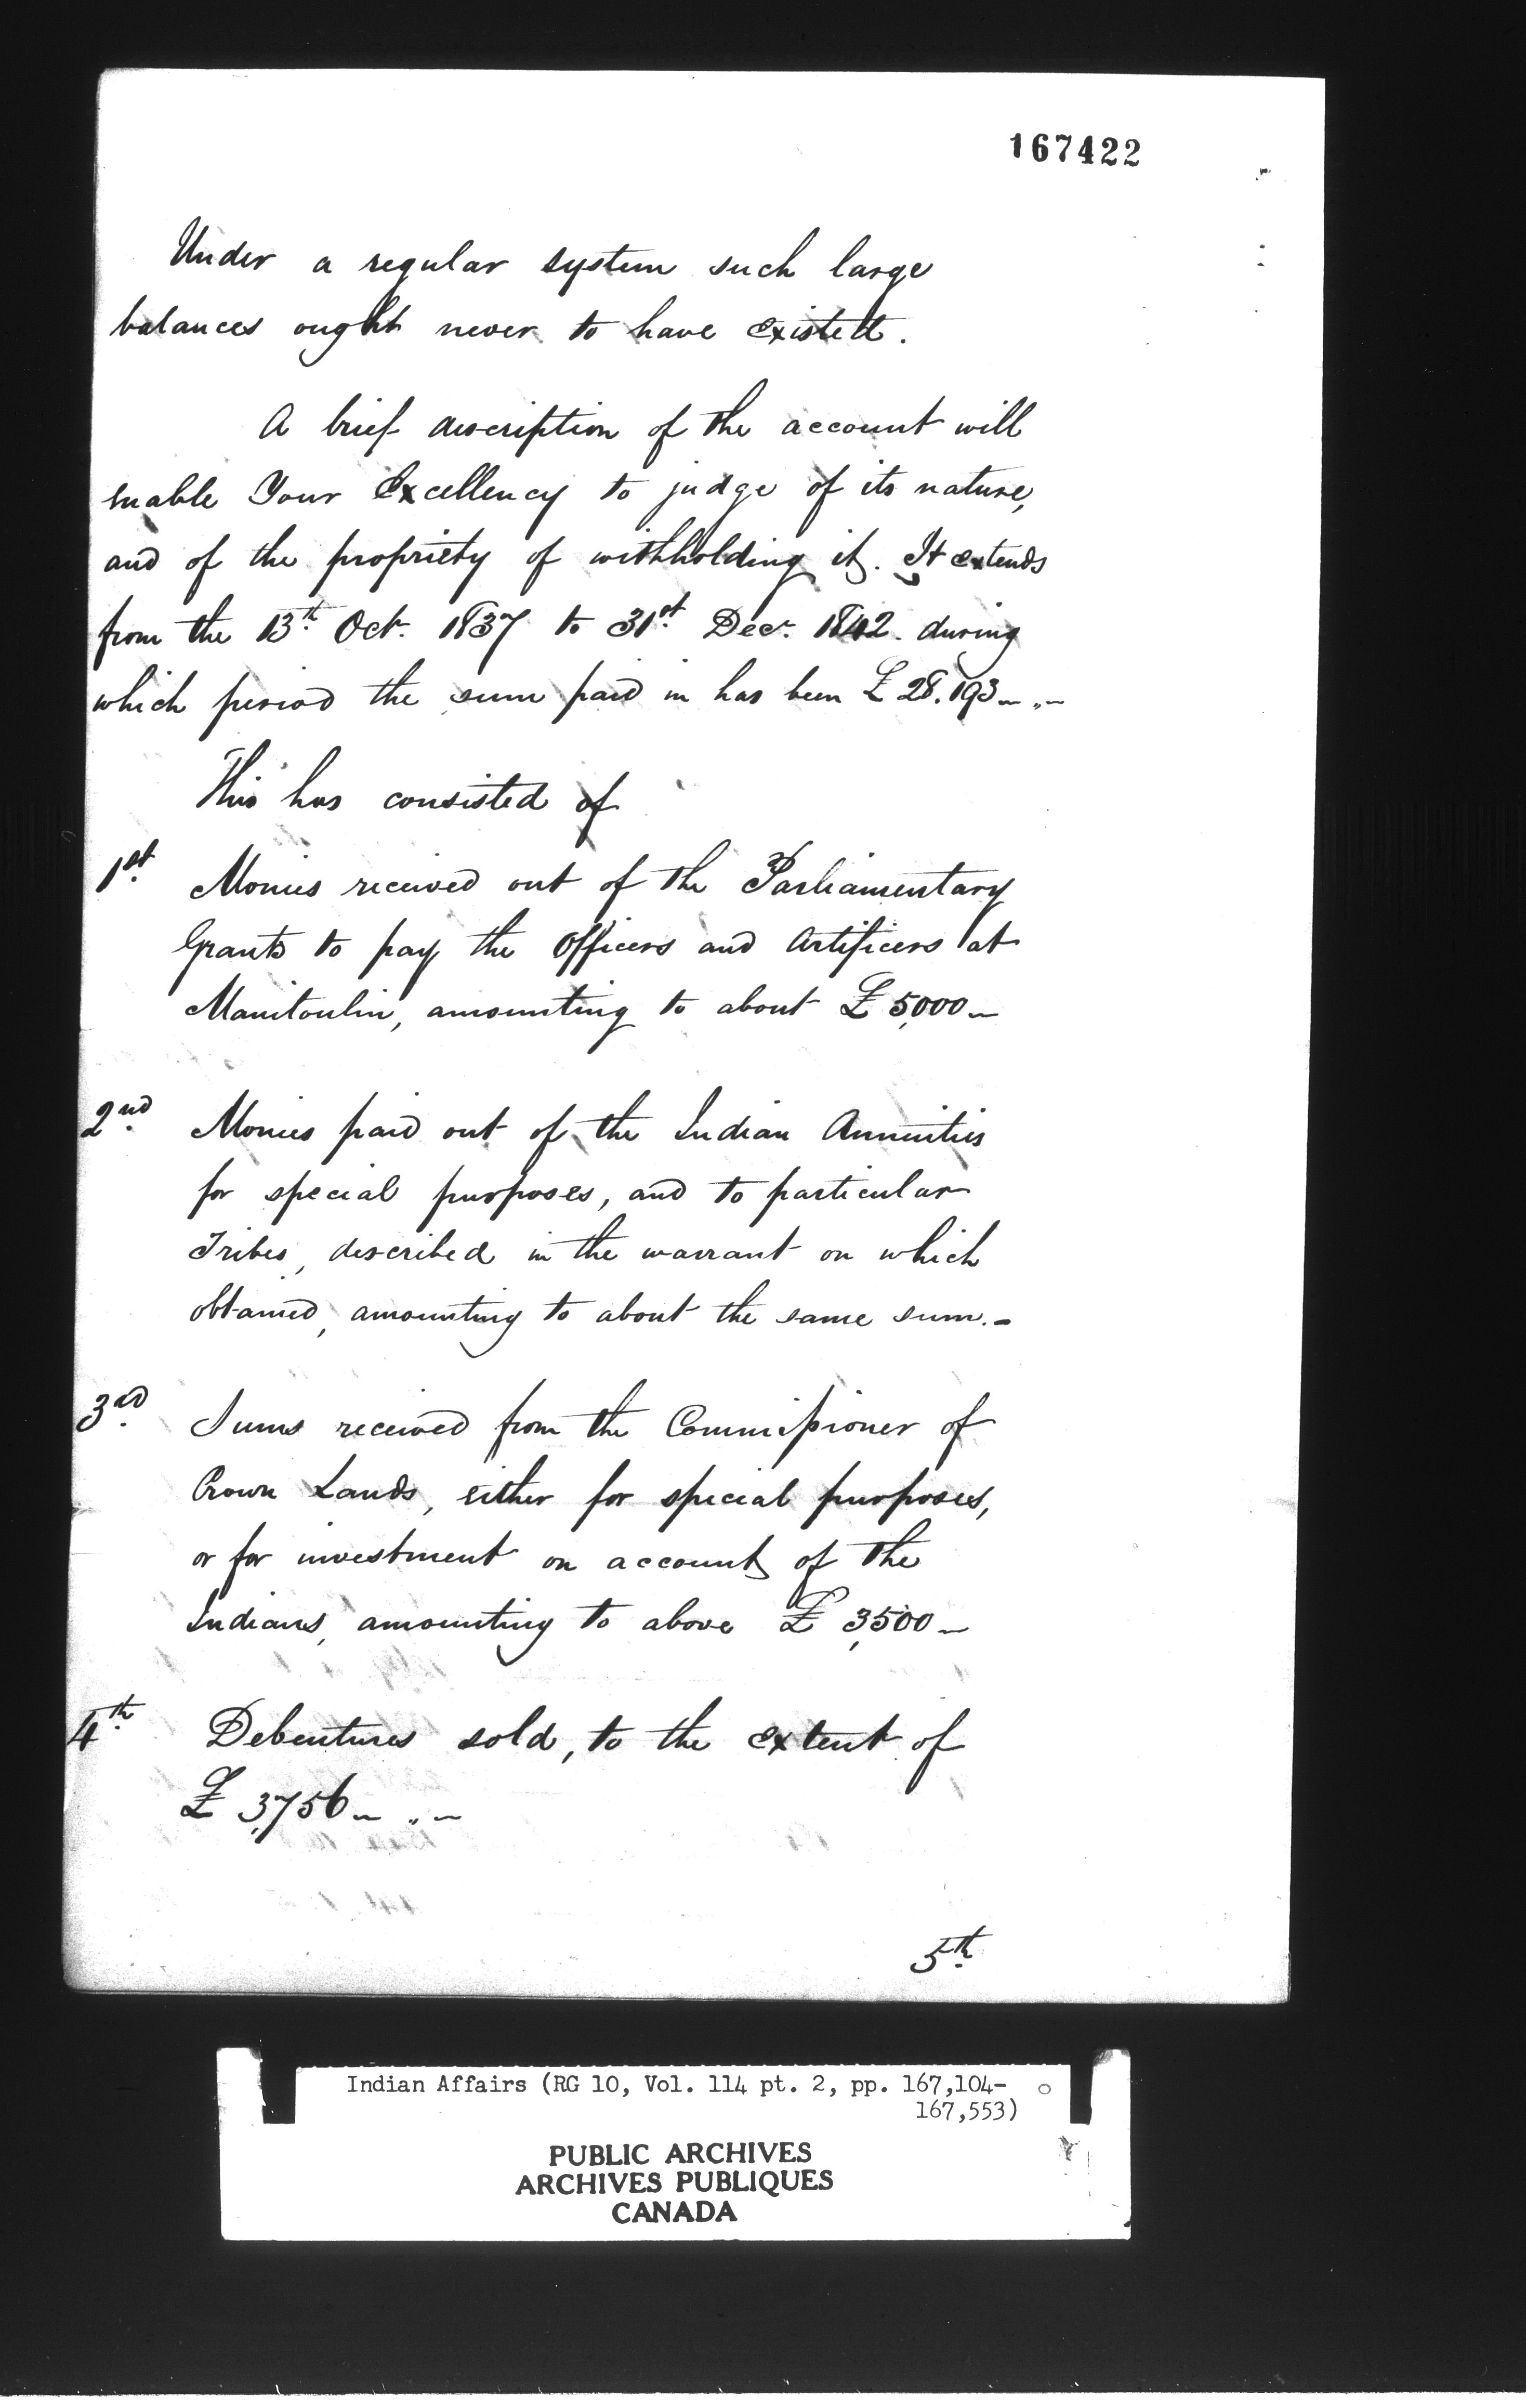 167422
Under a regular system such large
balances ought never to have existed.
A brief description of the account will
enable Your Excellency to judge of its nature,
and of the propriety of withholding it. It extends
from the 13th Oct. 1837 to 31st Decr. 1842. during
which period the sum paid in has been £ 28.193 – „ –
This has consisted of
1st. Monies received out of the Parliamentary
Grants to pay the Officers and Artificers at
Manitoulin, amounting to about £ 5,000 –
2nd. Monies paid out of the Indian Annuities
for special purposes, and to particular
Tribes, described in the warrant on which
obtained, amounting to about the same sum. –
3rd. Sums received from the Commissioner of
Crown Lands, either for special purposes,
or for investment on account of the
Indians, amounting to above £ 3,500 –
4th. Debentures sold, to the extent of
£ 3,756 – „ –
5th.
Indian Affairs (RG 10, Vol. 114 pt. 2, pp. 167,104-
167,553)
PUBLIC ARCHIVES
ARCHIVES PUBLIQUES
CANADA